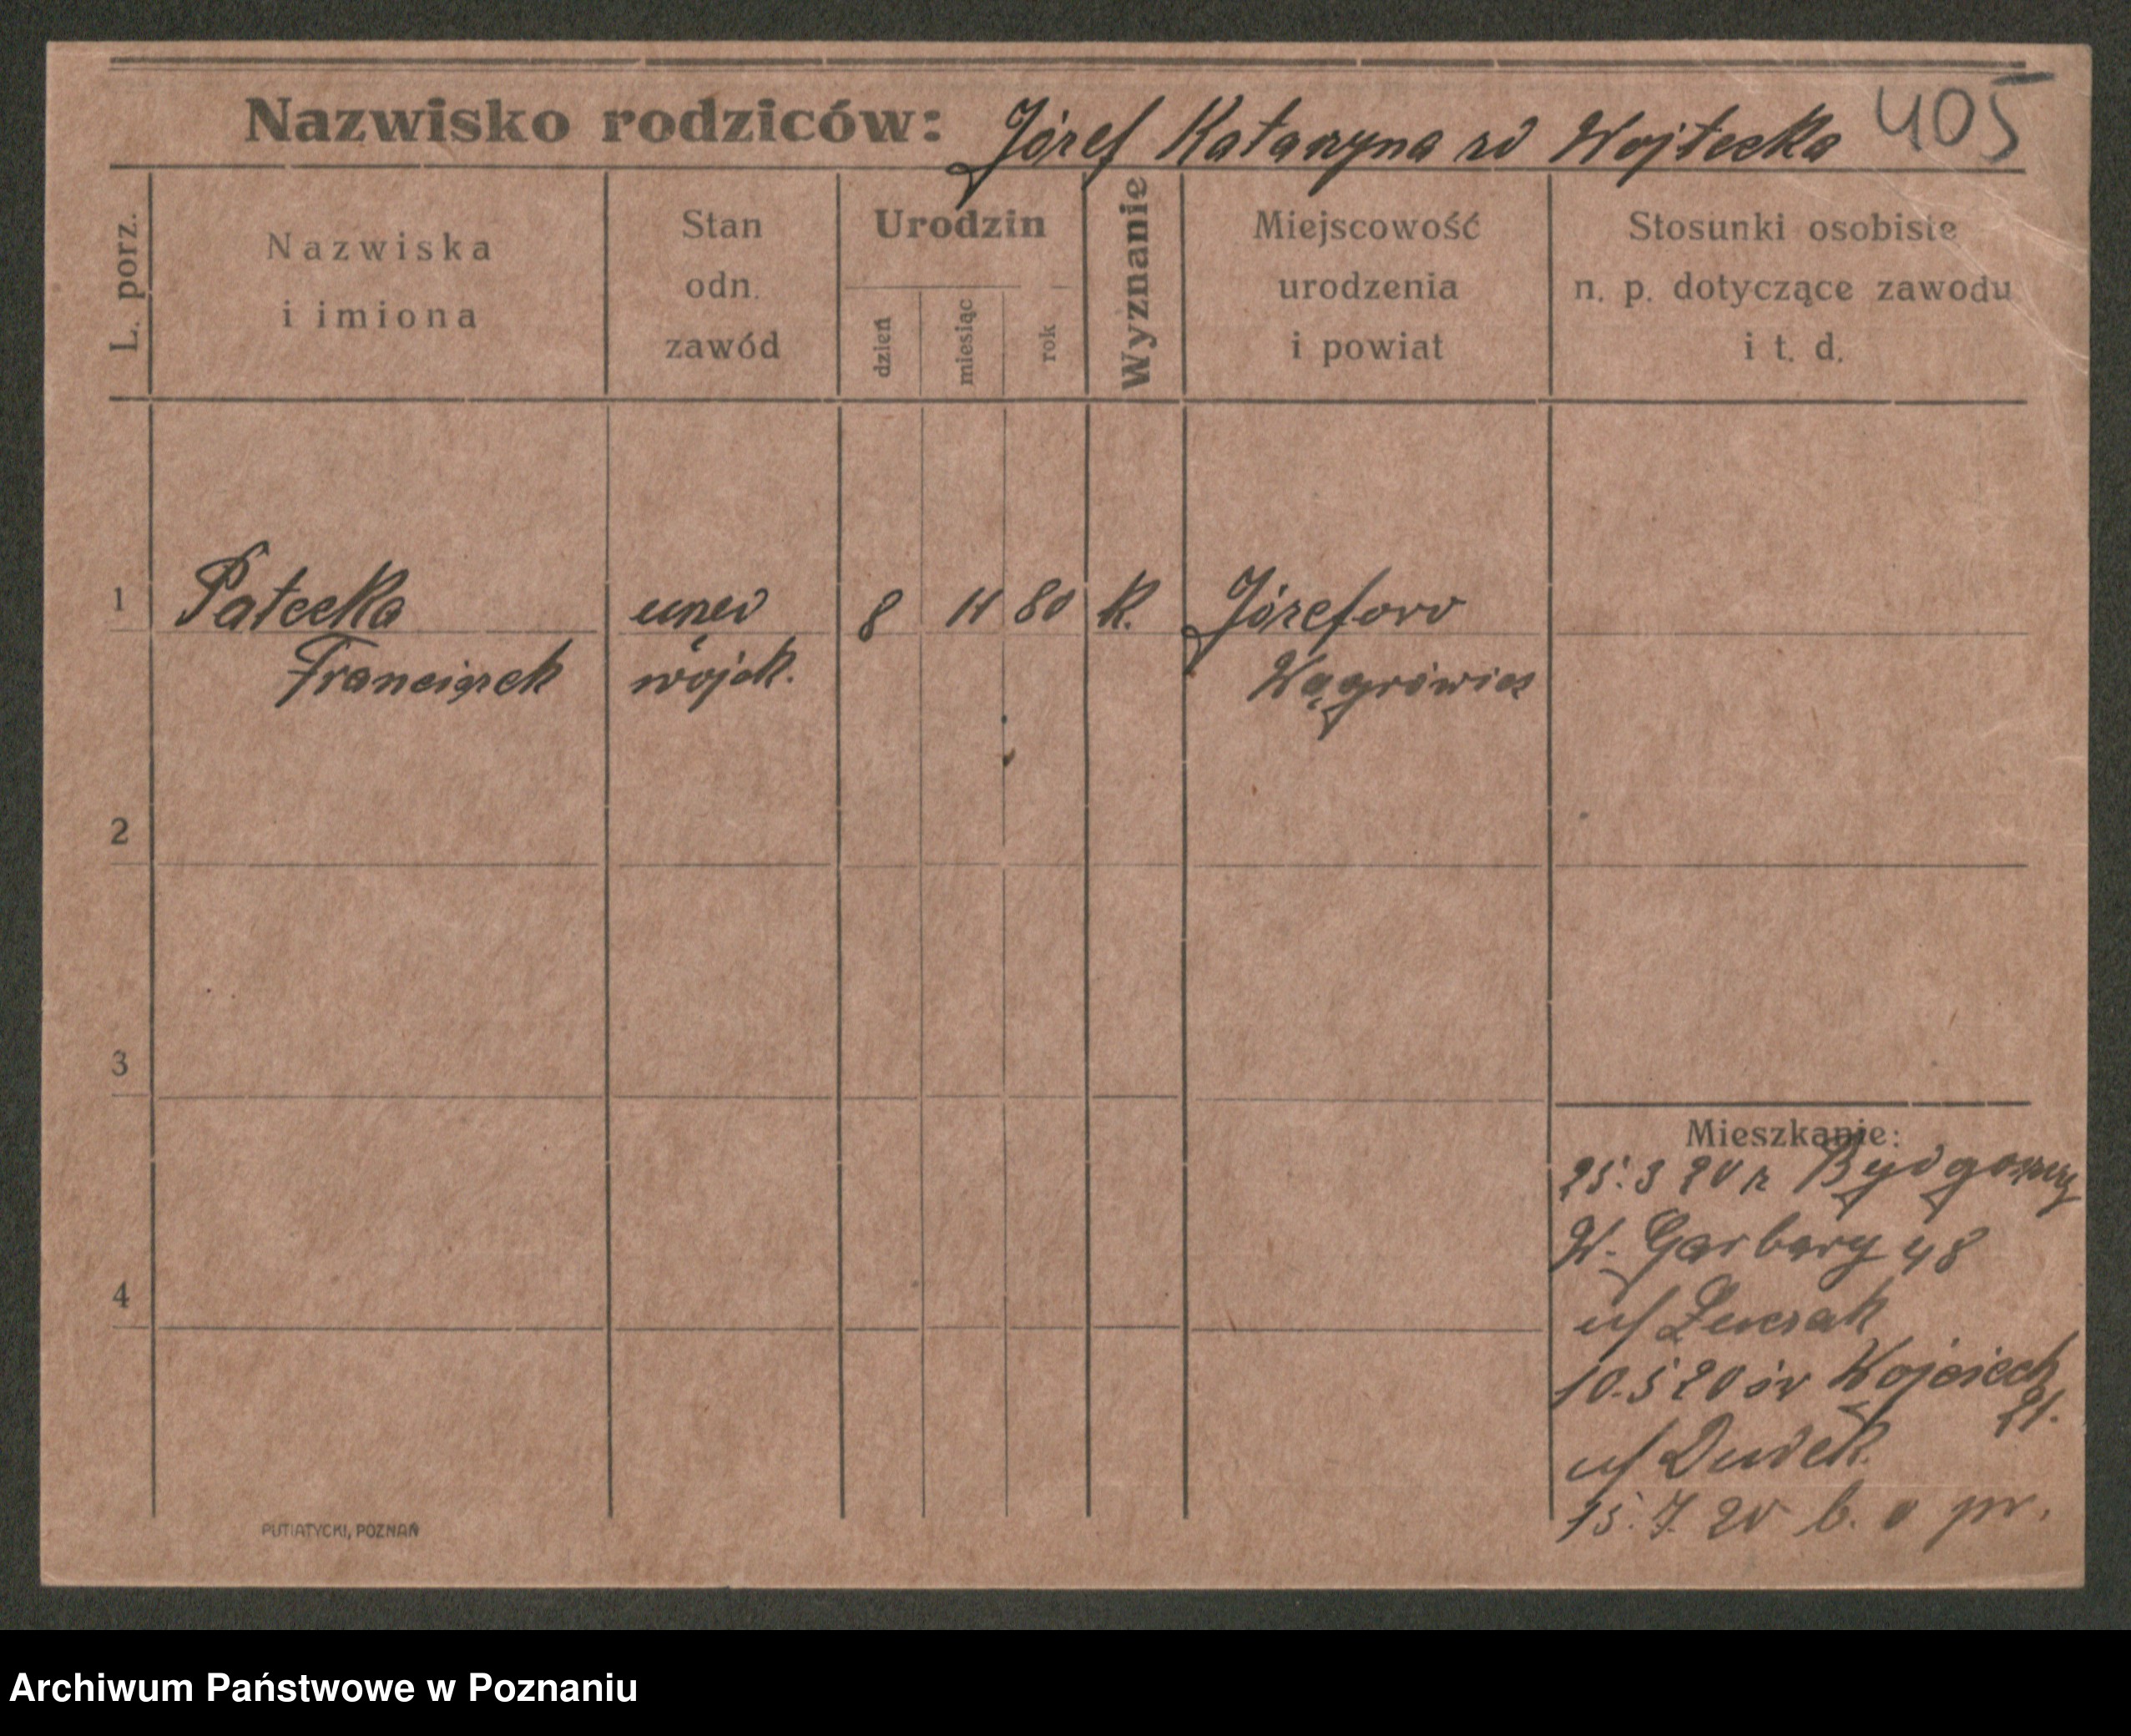 Nazwisko rodziców: Józef Katarzyna rd Wojtecka 405
L. porz.
Nazwiska i imiona
Stan odn. zawód
Urodzin
dzień
miesiąc
rok
Wyznanie
Miejscowość urodzenia i powiat
Stosunki osobiste n. p. dotyczące zawodu i t. d.
1 Patecka 8 11 80 k. Józefowo
Franciszek wojsk. Wągrówiec
2
3
4
Mieszkanie:
25.3 20 z Bydgoszczy
W. Garbary 48
u/ Łuczak
10.5 20 św Wojciech
21.
u/ Dudek
15.7. 20 b. o pr.
PUTIATYCKI, POZNAŃ
Archiwum Państwowe w Poznaniu